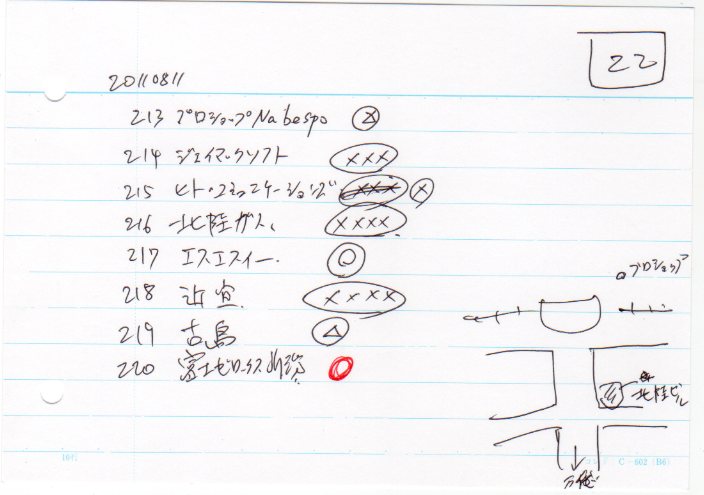 22
20110811
213 プロショップNabespo
214 ジェイマックソフト ×××
215 ヒト・コミュニケーションズ ×
216 北陸ガス ××××
217 エスエスイー ○
218 ××××
219 古島 △
220 富士ゼロックス ○
プロショップ
北陸ビル
C-602 (B6)